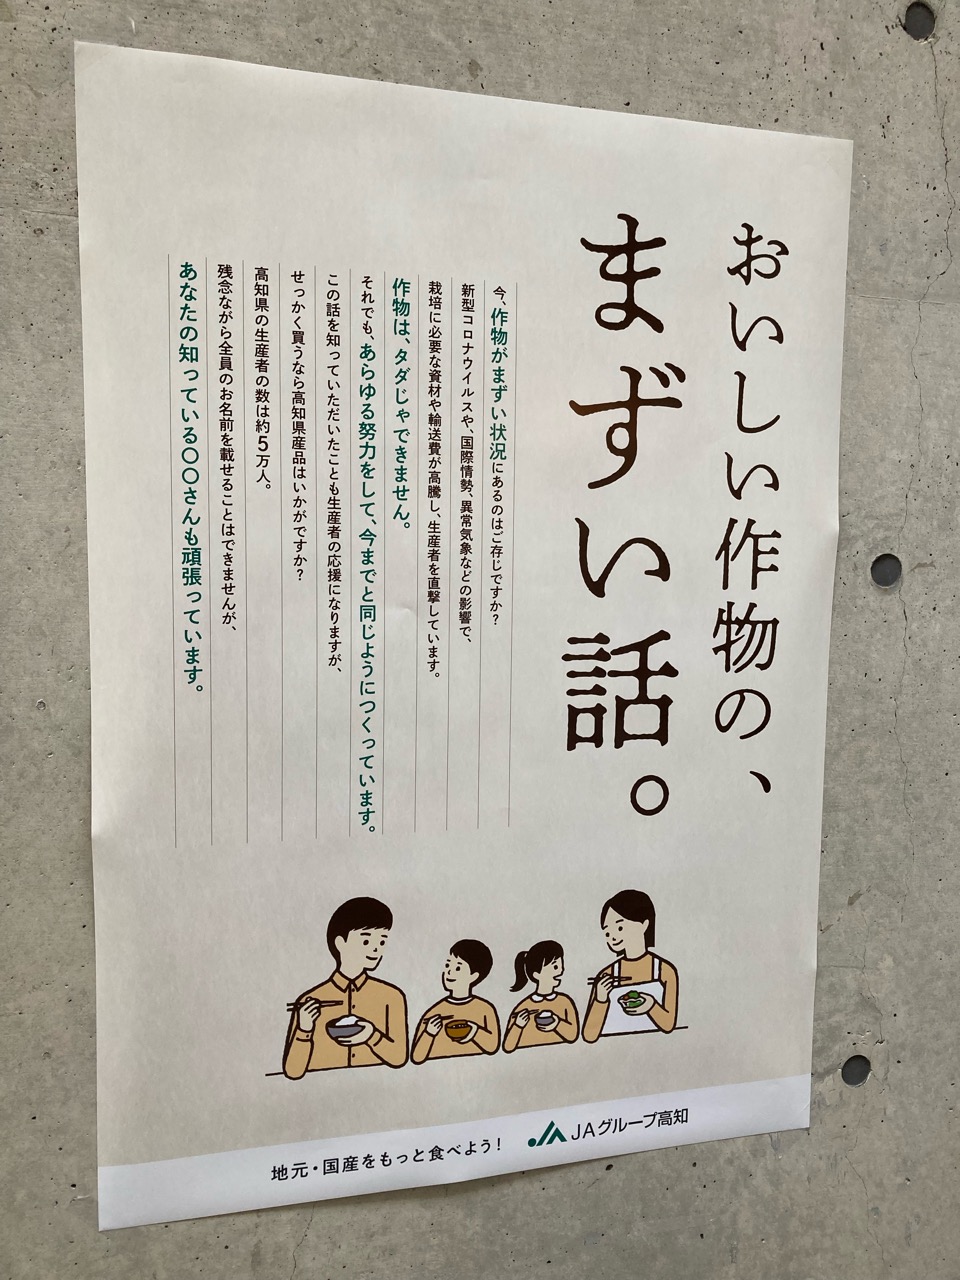 おいしい作物の、
まずい話。
今、作物がまずい状況にあるのはご存じですか?
新型コロナウイルスや、国際情勢、異常気象などの影響で、
栽培に必要な資材や輸送費が高騰し、生産者を直撃しています。
作物は、タダじゃできません。
それでも、あらゆる努力をして、今までと同じようにつくっています。
この話を知っていただいたことも生産者の応援になりますが、
せっかく買うなら高知県産品はいかがですか?
高知県の生産者の数は約5万人。
残念ながら全員のお名前を載せることはできませんが、
あなたの知っている〇〇さんも頑張っています。
地元・国産をもっと食べよう!
JAグループ高知